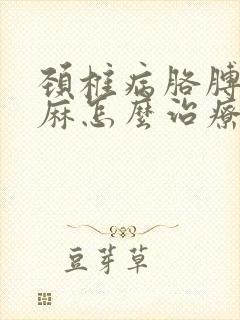 颈椎病胳膊
麻怎麽治療
豆芽草